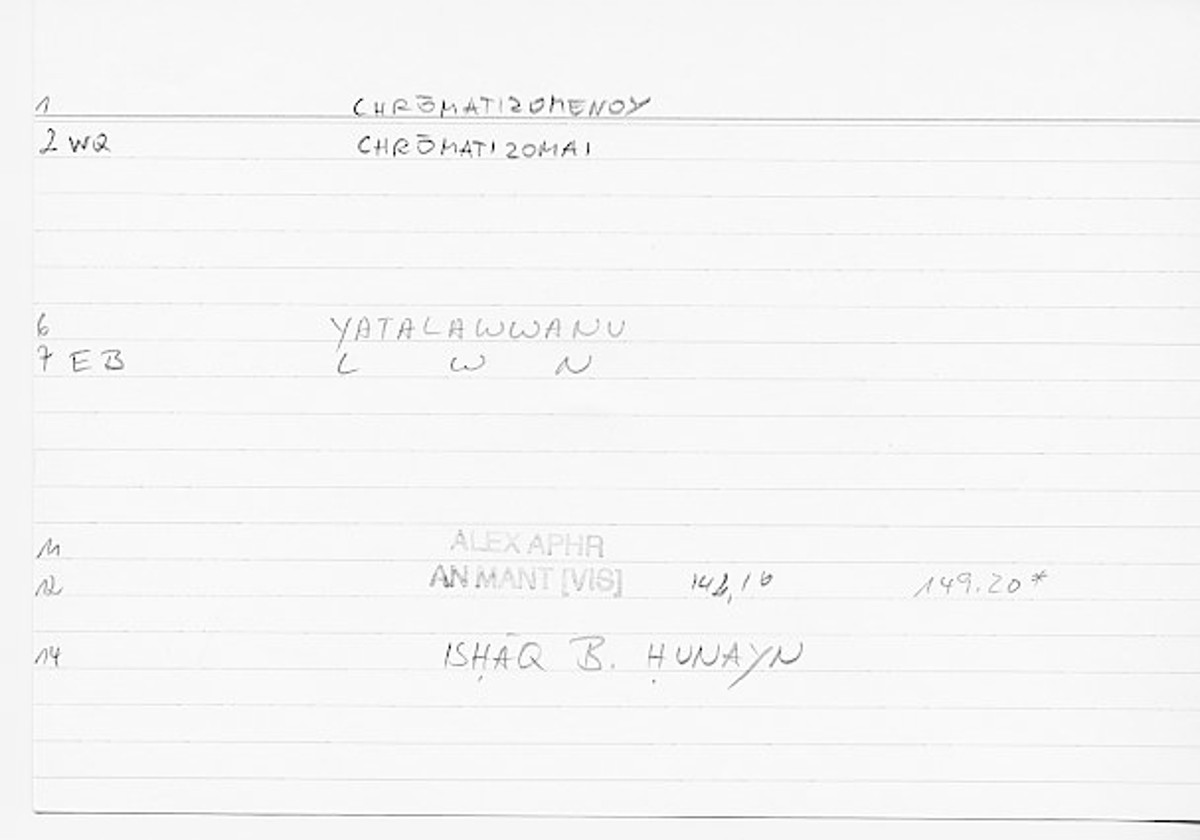 1 CHRŌMATIZOMENOY
2 WQ CHRŌMATIZOMAI
6 YATALAWWANU
7 EB L W N
11 ALEX APHR
12 AN MANT [VIS] 149.20*
14 ISḤĀQ B. ḤUNAYN